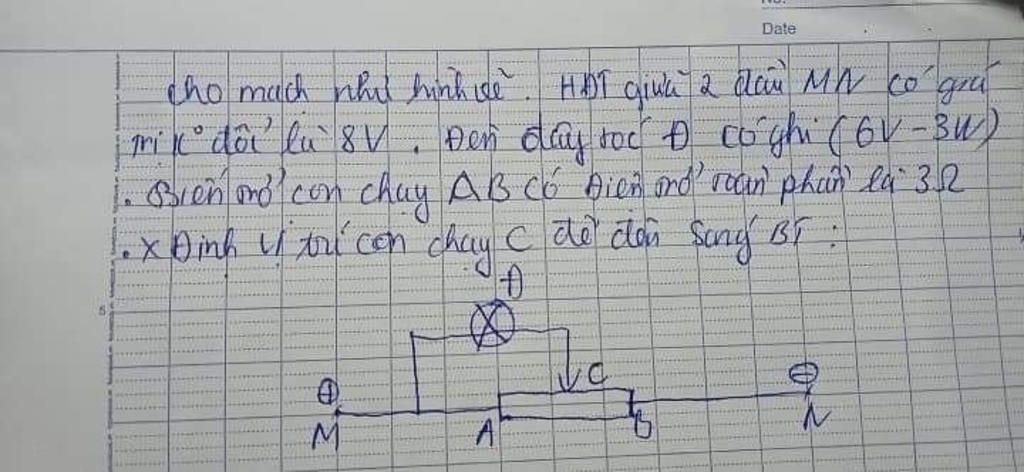 Date
cho mạch như hình vẽ. HĐT giữa 2 đầu MN có giá
trị k° đổi là 8V. Đèn dây tóc Đ có ghi (6V-3W)
. Biến trở con chạy AB có điện trở toàn phần là 3Ω
. X Định vị trí con chạy C để đèn sáng BT:
Đ
5
C
⊕
⊖
M
A
B
N